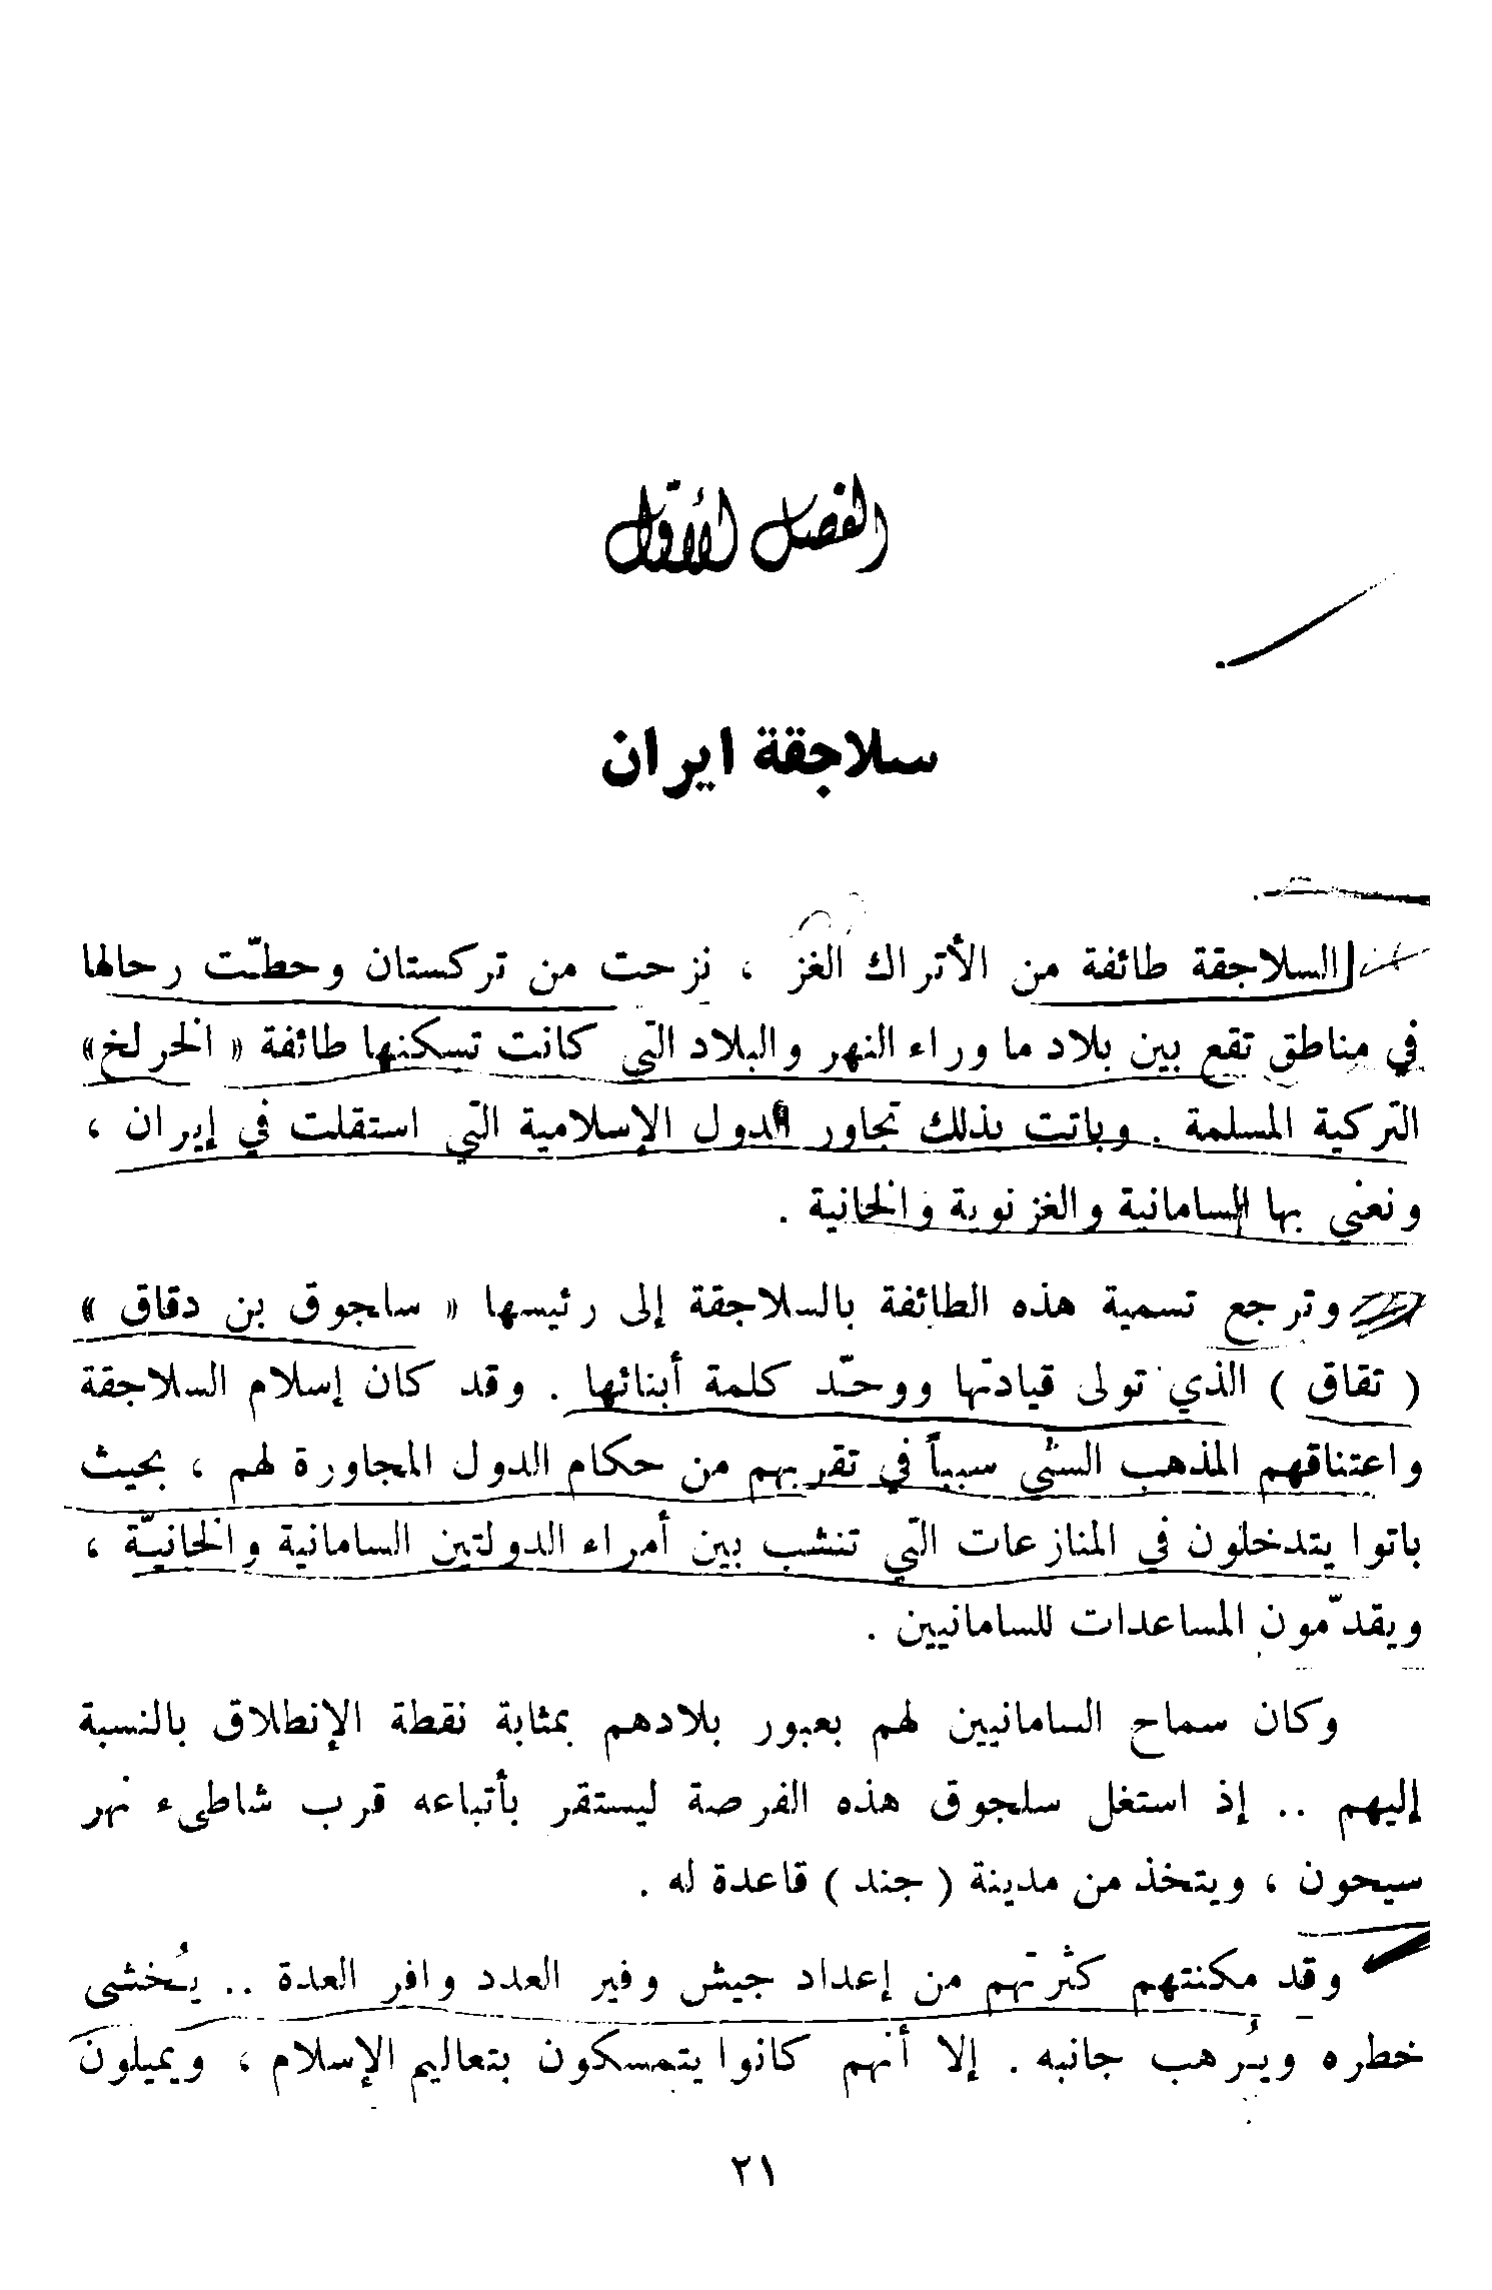 الفصل الأول
سلاجقة ايران
السلاجقة طائفة من الأتراك الغز ، نزحت من تركستان وحطّت رحالها
في مناطق تقع بين بلاد ما وراء النهر والبلاد التي كانت تسكنها طائفة « الخرلخ »
التركية المسلمة . وباتت بذلك تجاور الدول الإسلامية التي استقلت في إيران ،
ونعني بها السامانية والغزنوية والخانية .
وترجع تسمية هذه الطائفة بالسلاجقة إلى رئيسها « سلجوق بن دقاق »
( تقاق ) الذي تولى قيادتها ووحّد كلمة أبنائها . وقد كان إسلام السلاجقة
واعتناقهم المذهب السنّي سبباً في تقربهم من حكام الدول المجاورة لهم ، بحيث
باتوا يتدخلون في المنازعات التي تنشب بين أمراء الدولتين السامانية والخانيّة ،
ويقدّمون المساعدات للسامانيين .
وكان سماح السامانيين لهم بعبور بلادهم بمثابة نقطة الإنطلاق بالنسبة
إليهم .. إذ استغل سلجوق هذه الفرصة ليستقر بأتباعه قرب شاطىء نهر
سيحون ، ويتخذ من مدينة ( جند ) قاعدة له .
وقد مكنتهم كثرتهم من إعداد جيش وفير العدد وافر العدة .. يُخشى
خطره ويُرهب جانبه . إلا أنهم كانوا يتمسكون بتعاليم الإسلام ، ويميلون
٢١